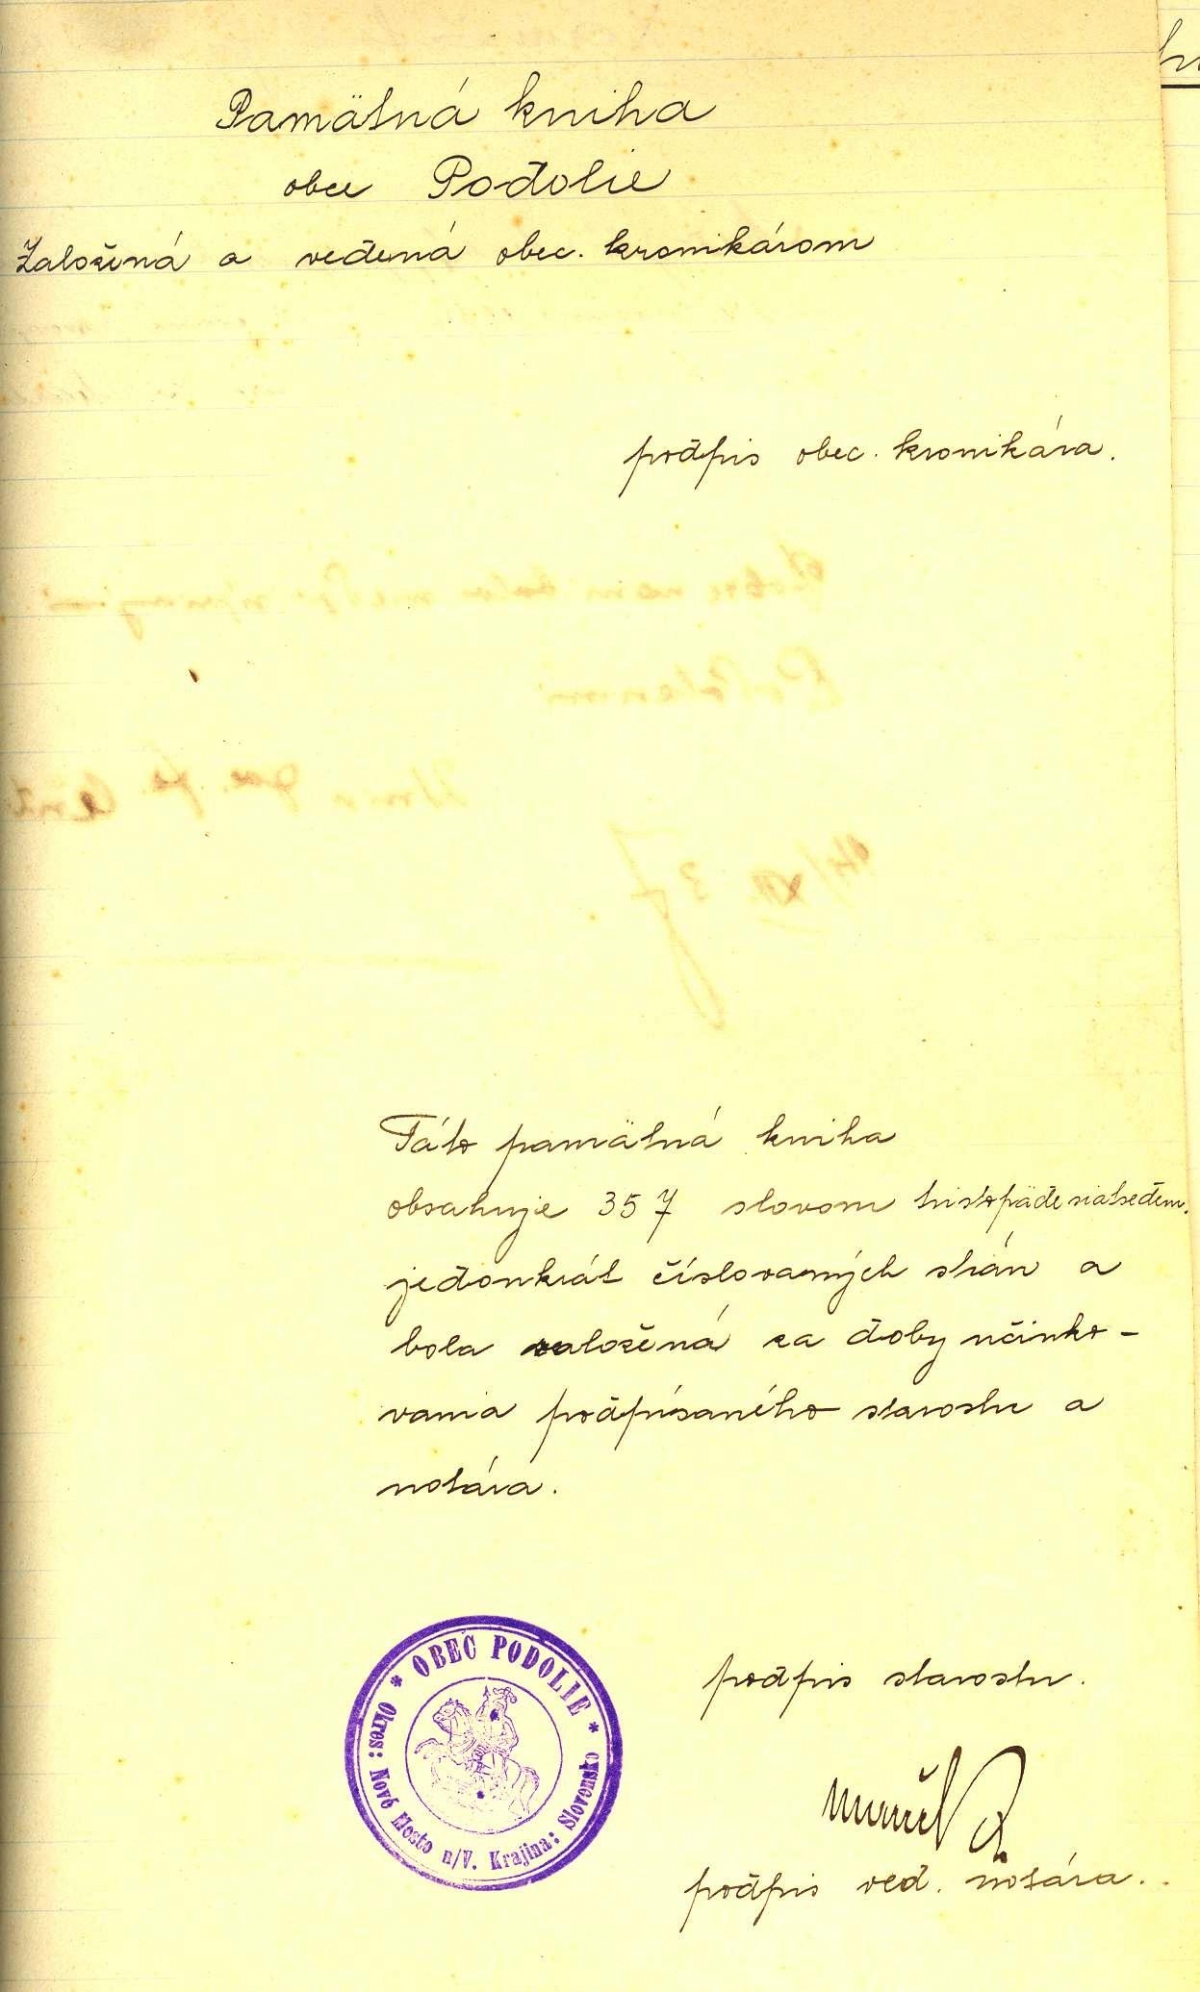 Pamätná kniha
obce Podolie
Založená a vedená obec. kronikárom
podpis obec. kronikára.
Táto pamätná kniha
obsahuje 357 slovom tristopäďesiatsedem.
jedonkrát číslovaných strán a
bola založená za doby učinko-
vania podpísaného starostu a
notára.
* OBEC PODOLIE *
Okres: Nové Mesto n/V. Krajina: Slovensko
podpis starostu.
podpis ved. notára.